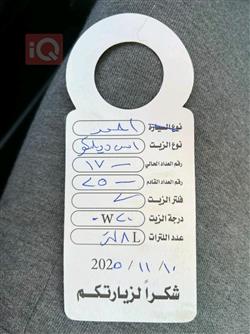 iQ
نوع السيارة
نوع الزيت اس ديلكو
رقم العداد الحالي ١٧ —
رقم العداد القادم ٢٥ —
فلتر الزيت ✓
درجة الزيت ٠W٢٠
عدد اللترات ٨L لتر
2025 / ١١ / ١٠
شكراً لزيارتكم